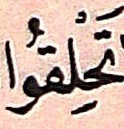 تَحْلِقُوا